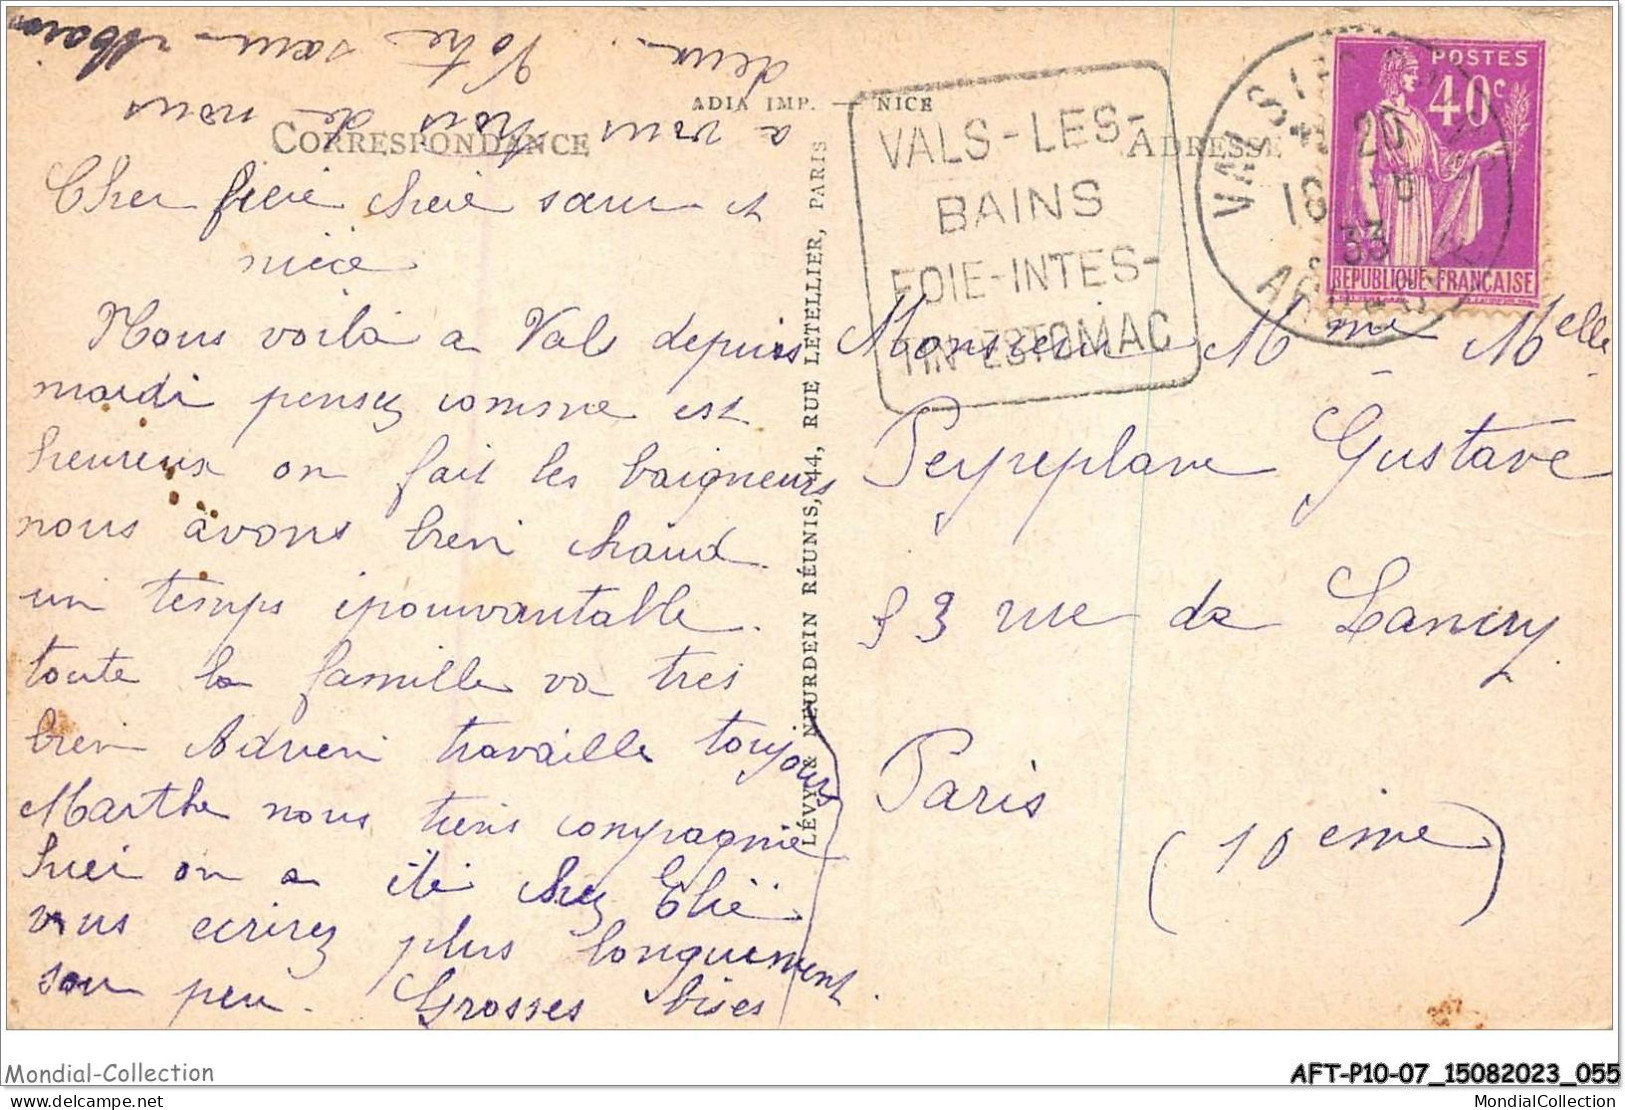 ADIA IMP. — NICE
CORRESPONDANCE
Cher frère chère sœur et
nièce
Nous voilà a Vals depuis
mardi pensez comme est
heureux on fait les baigneurs
nous avons bien chaud
un temps épouvantable.
toute la famille va tres
bien Adrien travaille toujours
Marthe nous tiens compagnie
huei on a été chez Elie
vous ecrirez plus longuement
sou peu. Grosses bises
a vous trois de nous
deux. Votre sœur
LÉVY & NEURDEIN RÉUNIS, 44, RUE LETELLIER, PARIS
VALS-LES-
BAINS
FOIE-INTES-
TIN-ESTOMAC
ADRESSE
POSTES
40c
REPUBLIQUE FRANCAISE
VALS
20
16
33
Monsieur Mme Melle
Peyreplane Gustave
53 rue de Lancry
Paris
(10 eme)
Mondial-Collection
AFT-P10-07_15082023_055
delcampe.net
MondialCollection